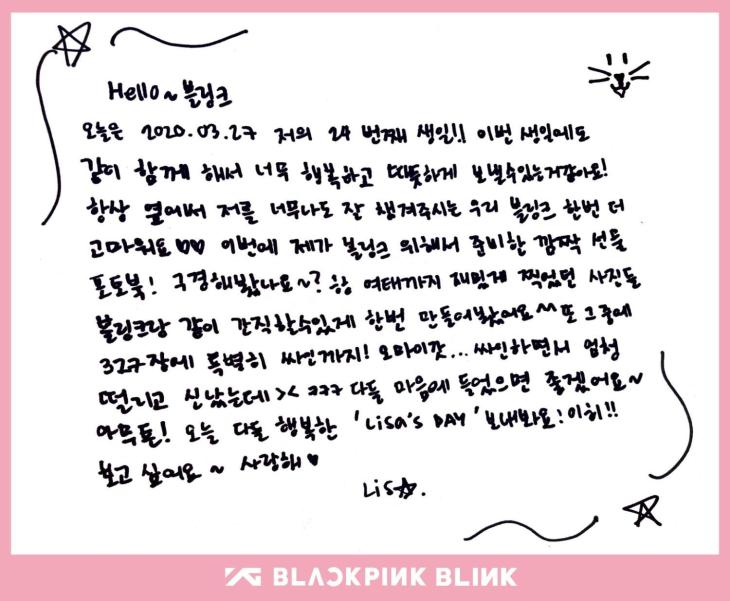 Hello~ 블링크
오늘은 2020.03.27 저의 24 번째 생일!! 이번 생일에도
같이 함께 해서 너무 행복하고 따뜻하게 보낼수있는거같아요!
항상 옆에서 저를 너무나도 잘 챙겨주시는 우리 블링크 한번 더
고마워요♡♡ 이번에 제가 블링크 위해서 준비한 깜짝 선물
포토북! 구경해봤나요~? 여태까지 재밌게 찍었던 사진들
블링크랑 같이 간직할수있게 한번 만들어봤어요^^ 또 그중에
327장에 특별히 싸인까지! 오마이갓... 싸인하면서 엄청
떨리고 신났는데 >< ㅋㅋㅋ 다들 마음에 들었으면 좋겠어요~
아무튼! 오늘 다들 행복한 'Lisa's DAY' 보내봐요! 이히!!
보고 싶어요 ~ 사랑해♥
LiS☆.
YG BLACKPINK BLINK